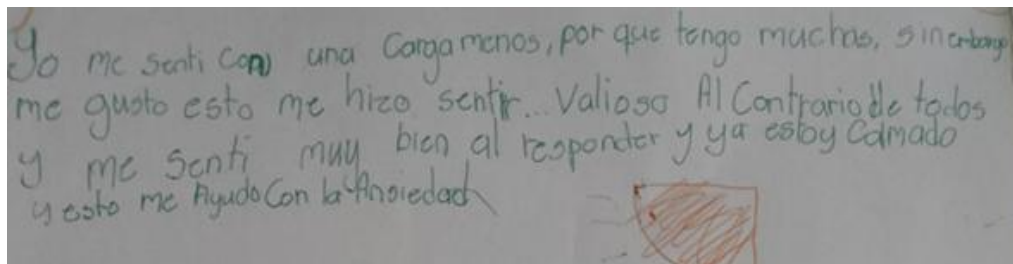 Yo me senti con una carga menos, por que tengo muchas, sin embargo
me gusto esto me hizo sentir... Valioso Al Contrario de todos
y me senti muy bien al responder y ya estoy Calmado
y esto me Ayudo Con la Ansiedad